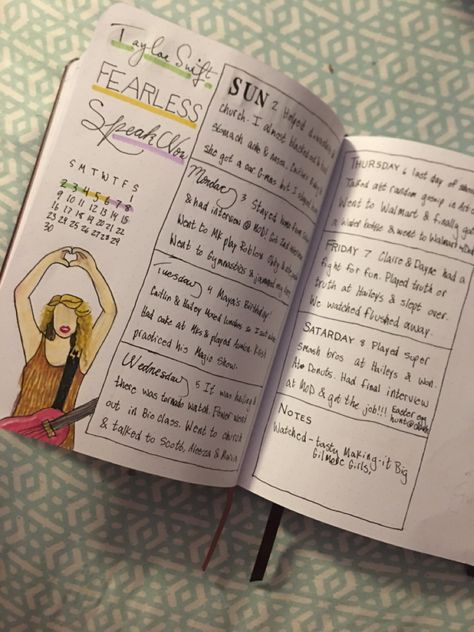 Taylor Swift
FEARLESS
Speak Now
S M T W T F S
2 3 4 5 6 7 8
9 10 11 12 13 14 15
16 17 18 19 20 21 22
23 24 25 26 27 28 29
30
SUN 2 Helped
church. I almost blacked out & had
stomach ache &
she got a car
Monday 3 Stayed home from
& had interview @ MOD! Got 2nd interview
Went to MK play Roblox
Went to gymnastics & jammed my
Tuesday 4 Maya's Birthday!
Caitlin & Hailey
Had cake at Mrs & played
practiced his Magic Show.
Wednesday 5 It was hailing &
there was tornado watch. Power went
out in Bio class. Went to church
& talked to Scott, Aleeza &
THURSDAY 6 last day of
Talked abt random group in
Went to Walmart & finally got
a water bottle & went to Walmart
FRIDAY 7 Claire & Dayne had a
fight for fun. Played truth or
truth at Haileys & slept over.
We watched flushed away.
SATARDAY 8 Played super
smash bros at Haileys & won.
Ate Donuts. Had final interview
at MOD & got the job!!! Easter egg
hunt @
NOTES
Watched - tasty Making-it Big
Gilmore Girls,